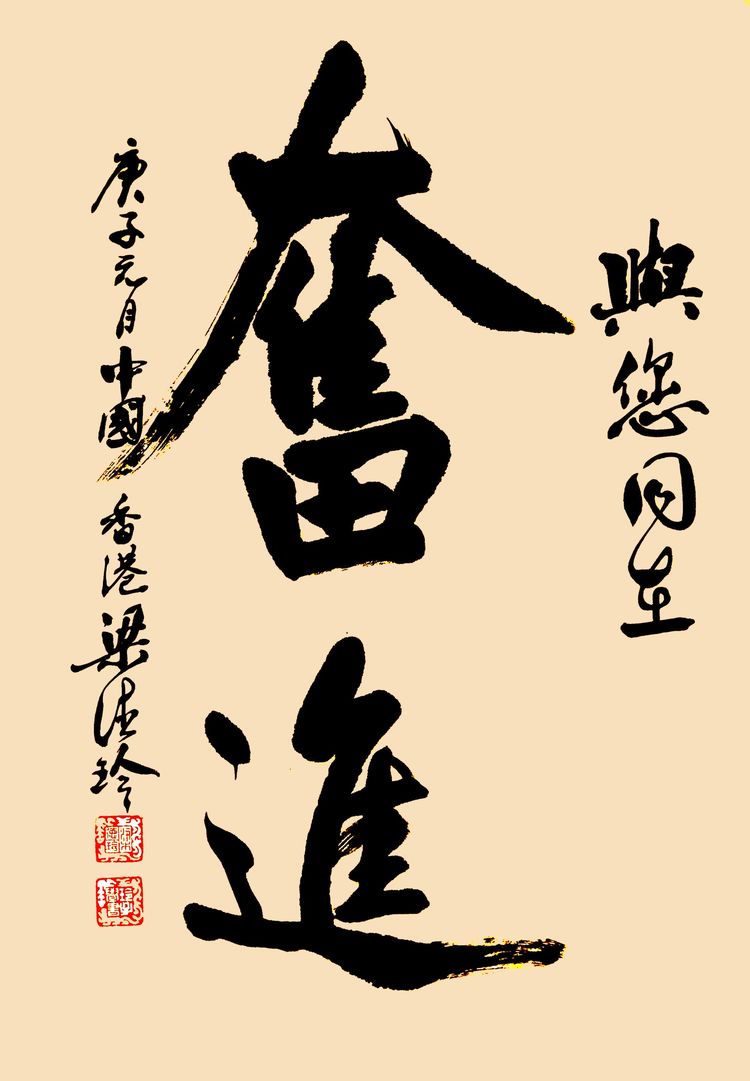 與您同在
奮進
庚子元月中國 香港梁德玲